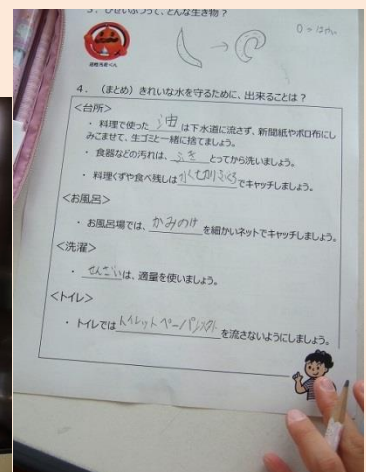 3．びせいぶつって、どんな生き物？
4．（まとめ）きれいな水を守るために、出来ることは？
＜台所＞
・料理で使った 油 は下水道に流さず、新聞紙やボロ布にし
みこませて、生ゴミと一緒に捨てましょう。
・食器などの汚れは、ふき とってから洗いましょう。
・料理くずや食べ残しは 水切りぶくろ でキャッチしましょう。
＜お風呂＞
・お風呂場では、かみのけ を細かいネットでキャッチしましょう。
＜洗濯＞
・せんざいは、適量を使いましょう。
＜トイレ＞
・トイレでは トイレットペーパー以外 を流さないようにしましょう。